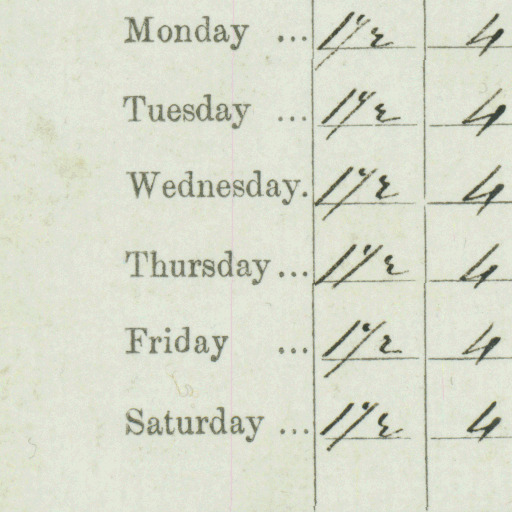 Monday ... 1½ 4
Tuesday ... 1½ 4
Wednesday. 1½ 4
Thursday ... 1½ 4
Friday ... 1½ 4
Saturday ... 1½ 4